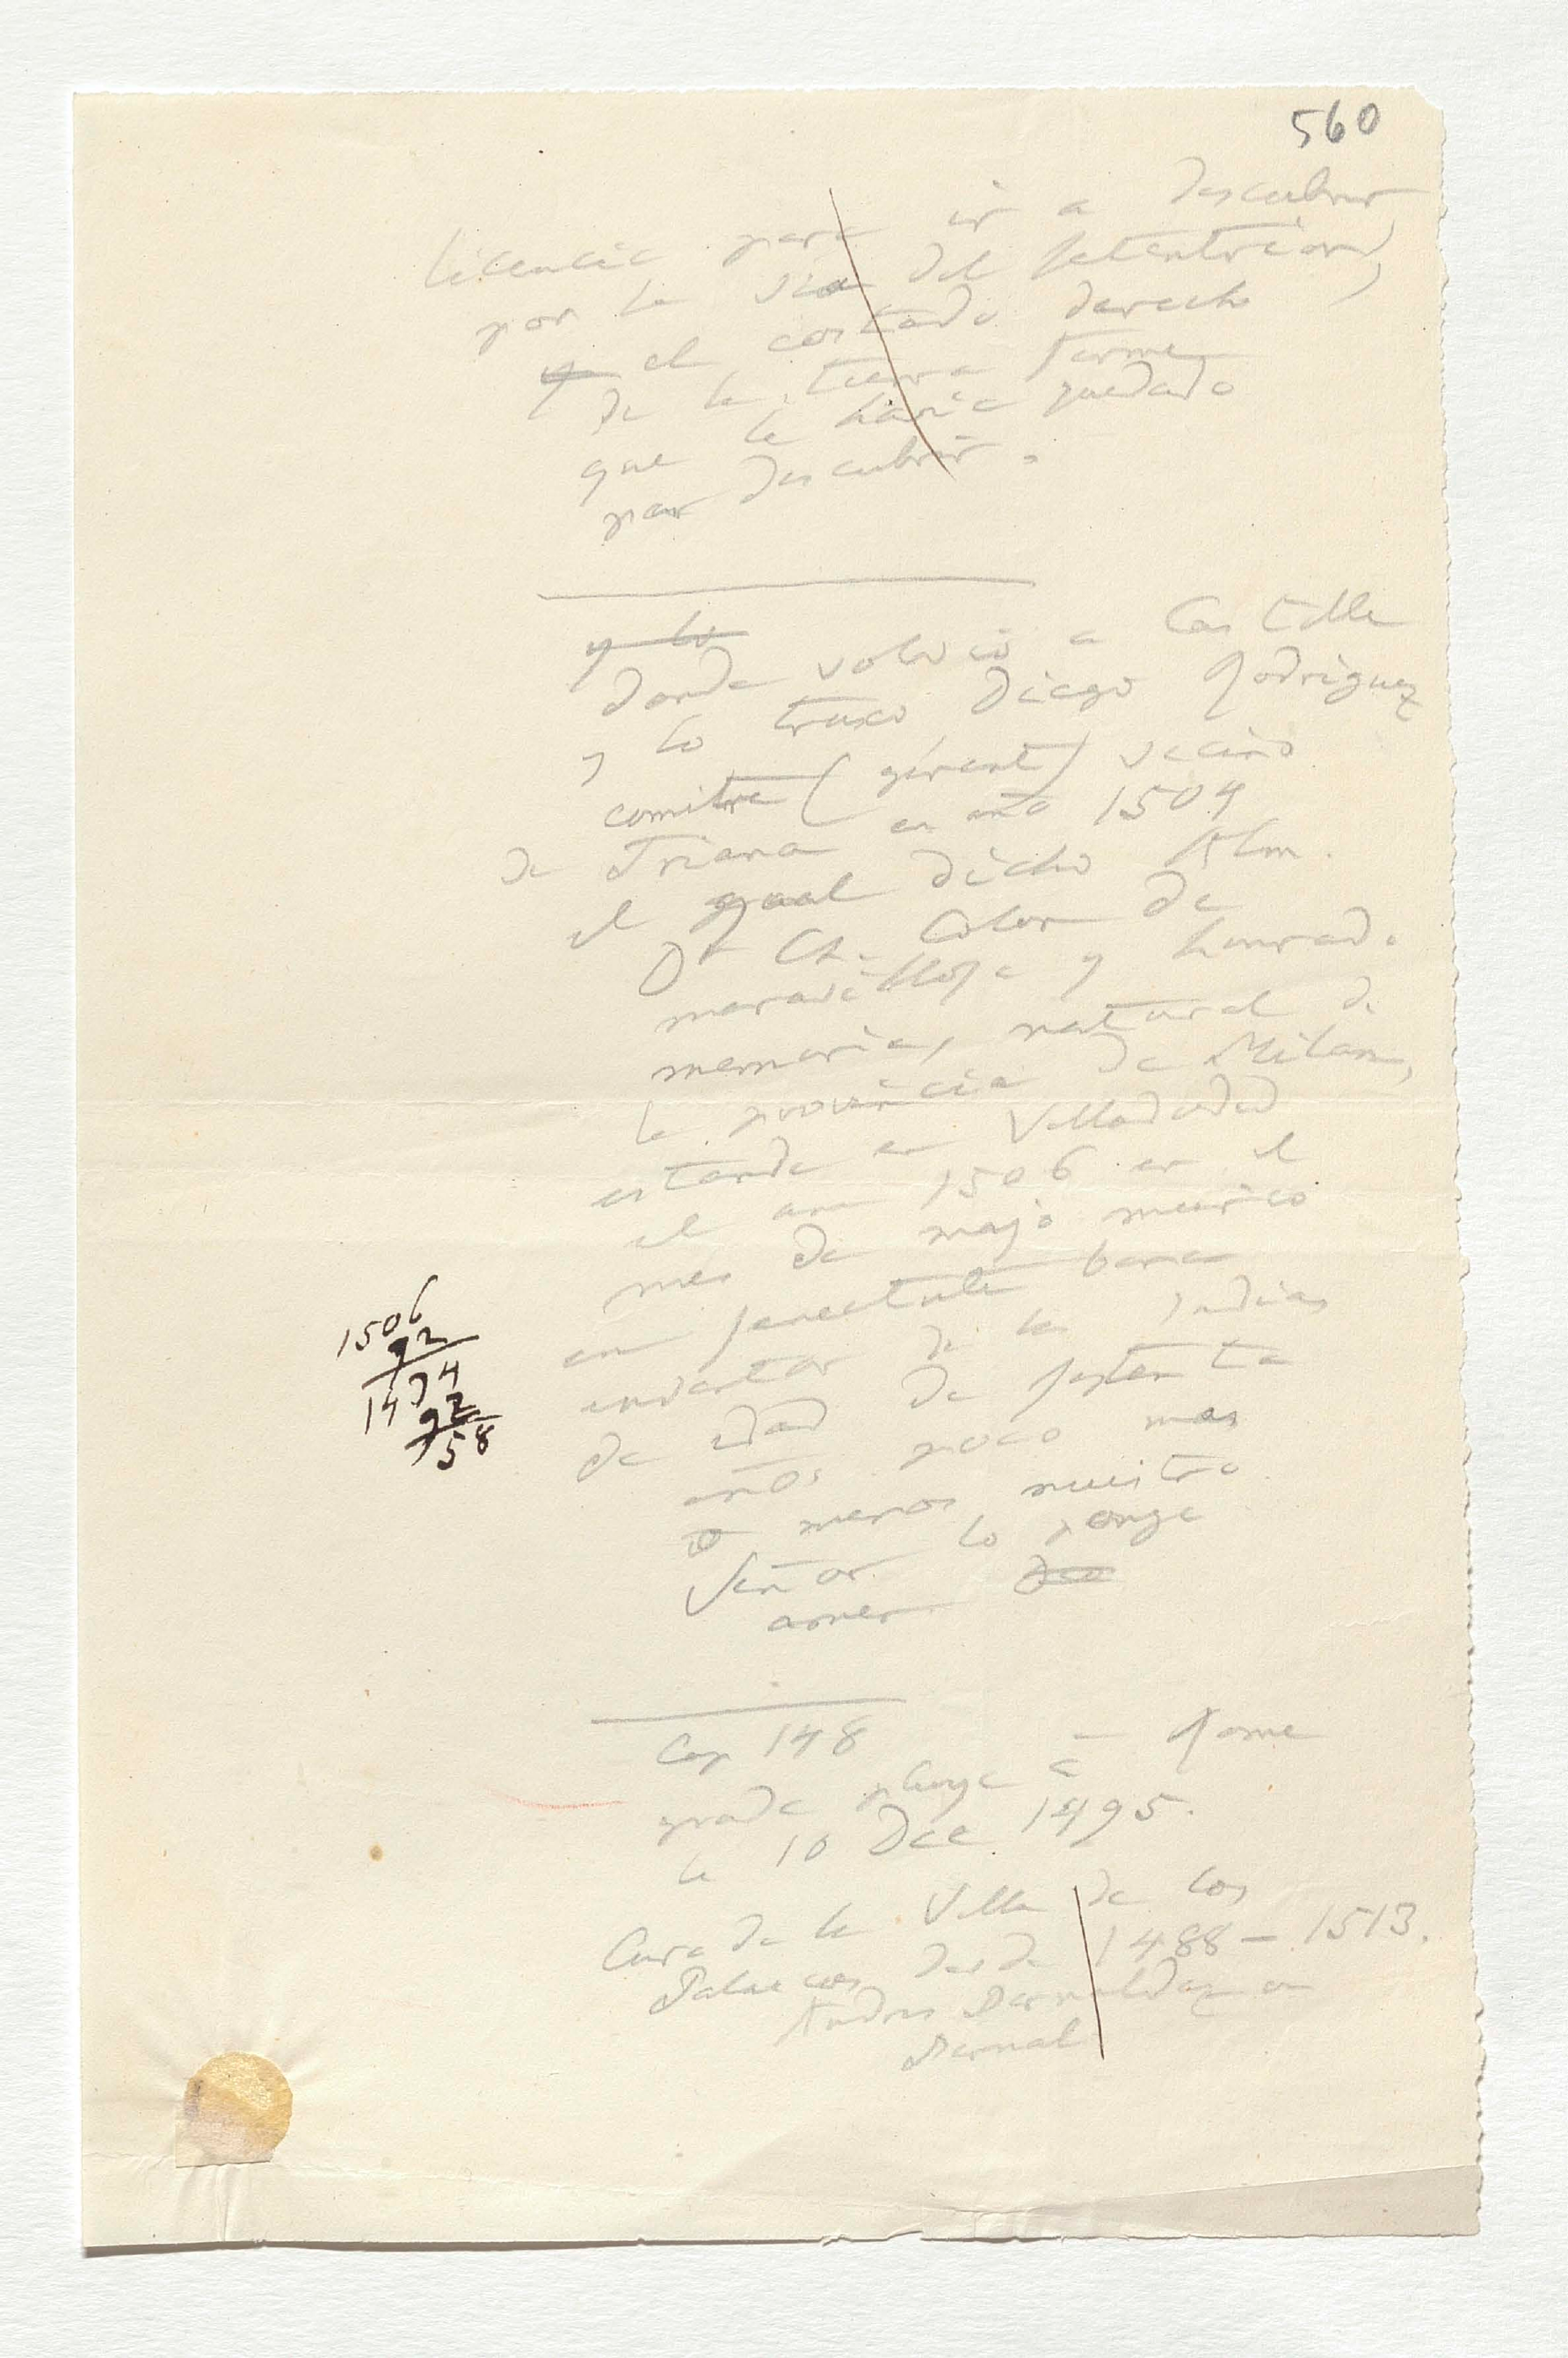 560
licencia para ir a descubrir
por la via del setentrion,
el costado derecho
de la tierra firme
que le havia quedado
por descubrir.
y lo
donde volvió a Castilla
y lo truxo Diego Rodriguez
comitre (gérant) vecino
de Triana en año 1504
el qual dicho Alm.
Dn Ch. Colon de
maravillosa y honrada
memoria, natural de
la provincia de Milan,
estando en Valladolid
el ano 1506 en el
mes de majo murió
en senectute bona
inventor de las Indias
de edad de setenta
años poco mas
o menos nuestro
Señor lo ponga
amen
Cap 148
grade pluye à Rome
le 10 Dec 1495.
Cura de la Villa de los
Palacios desde 1488-1513.
Andres Bernaldez ou
Bernal
1506
92
1434
92
58